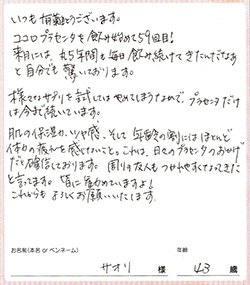 いつも有難うございます。
ココロプラセンタを飲み始めて59回目!
来月には、丸5年間も毎日飲み続けてきたんだなぁ
と自分でも驚いております。
様々なサプリを試してはやめてしまうなかで、プラセンタだけ
は、今まで続いています。
肌の保湿力、ツヤ感、そして年齢の割にはほとんど
体力の疲れを感じないこと。これは、日々のプラセンタのおかげ
だと確信しております。周りの友人もつかれやすくなってきた
と言ってます。皆に勧めていますよ!
これからもよろしくお願いいたします。
お名前(本名 or ペンネーム)
年齢
サオリ 様
43 歳